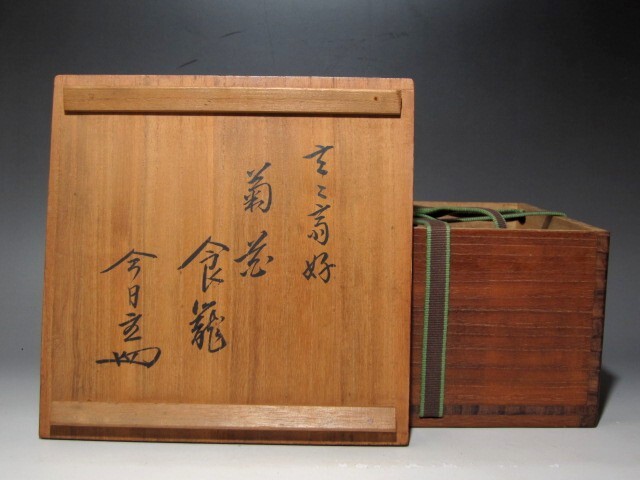 玄々斎好
菊花
食籠
今日庵